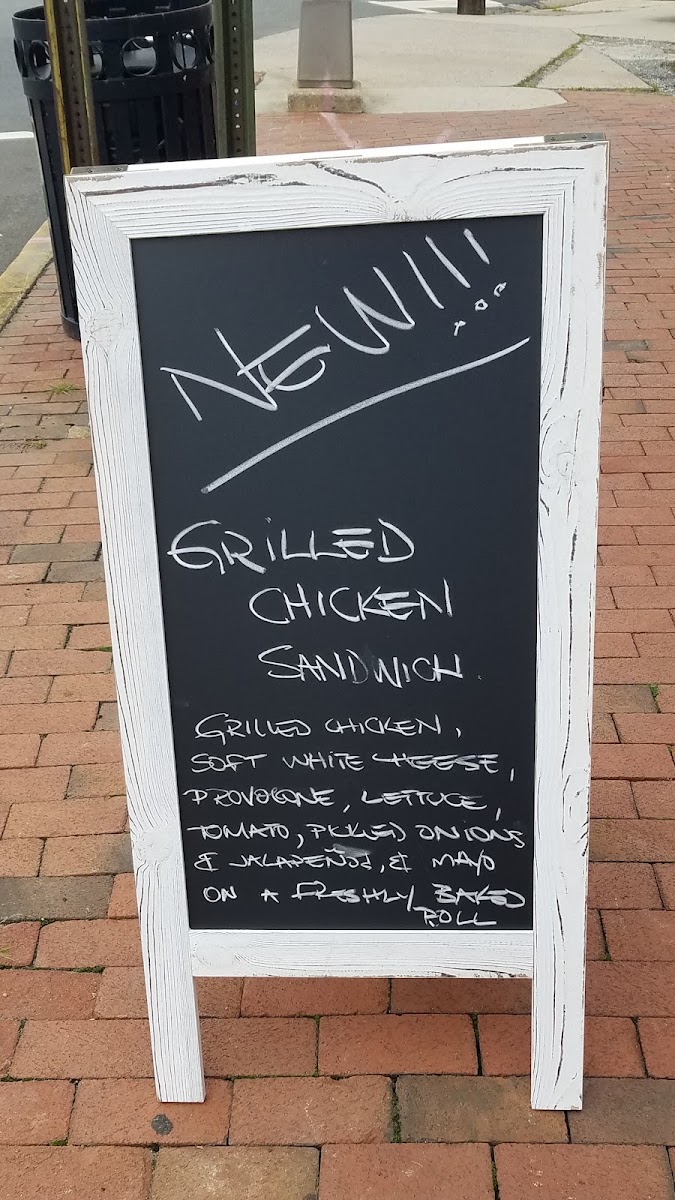 NEW!!!
GRILLED
CHICKEN
SANDWICH.
GRILLED CHICKEN,
SOFT WHITE CHEESE,
PROVOLONE, LETTUCE,
TOMATO, PICKLED ONIONS
& JALAPEÑOS, & MAYO
ON A FRESHLY BAKED
ROLL